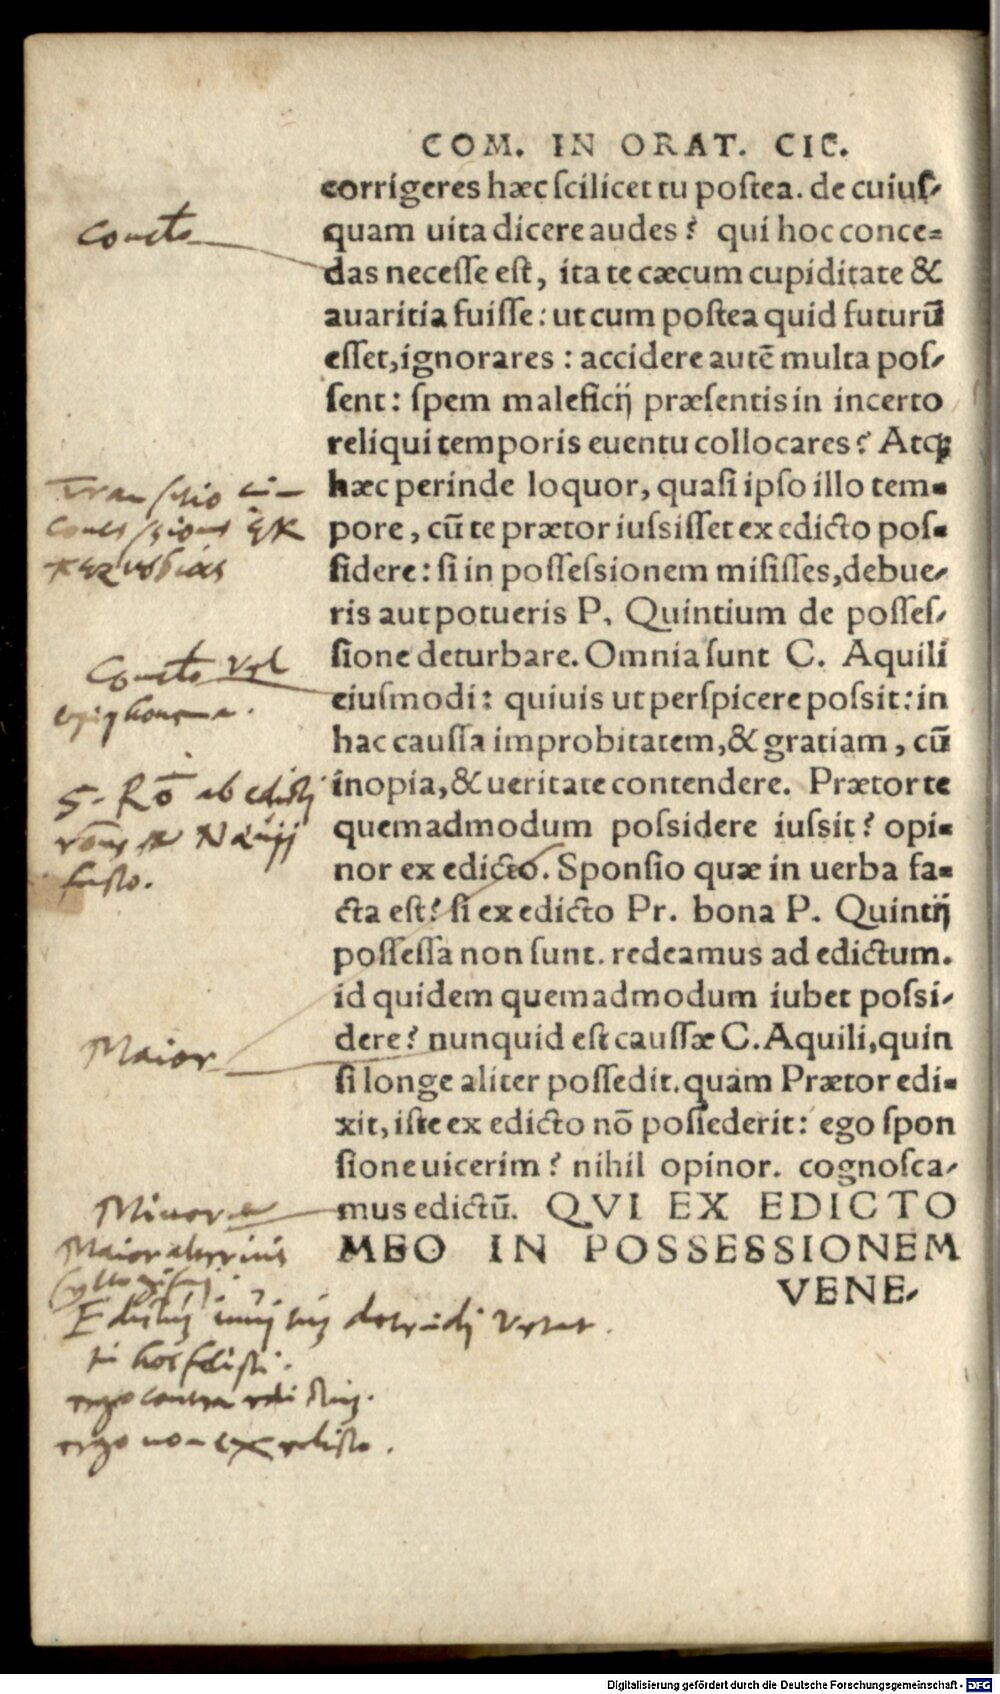 COM. IN ORAT. CIC.
corrigeres hæc scilicet tu postea. de cuius-
quam uita dicere audes? qui hoc conce=
das necesse est, ita te cæcum cupiditate &
auaritia fuisse: ut cum postea quid futurū
esset, ignorares: accidere autē multa pos-
sent: spem maleficij præsentis in incerto
reliqui temporis euentu collocares? Atq;
hæc perinde loquor, quasi ipso illo tem=
pore, cū te prætor iussisset ex edicto pos=
sidere: si in possessionem misisses, debue-
ris aut potueris P. Quintium de posses-
sione deturbare. Omnia sunt C. Aquili
eiusmodi: quiuis ut perspicere possit: in
hac caussa improbitatem, & gratiam, cū
inopia, & ueritate contendere. Prætor te
quemadmodum possidere iussit? opi=
nor ex edicto. Sponsio quæ in uerba fa=
cta est? si ex edicto Pr. bona P. Quintij
possessa non sunt. redeamus ad edictum.
id quidem quemadmodum iubet possi-
dere? nunquid est caussæ C. Aquili, quin
si longe aliter possedit. quam Prætor edi=
xit, iste ex edicto nō possederit: ego spon
sione uicerim? nihil opinor. cognosca-
mus edictū. QVI EX EDICTO
MEO IN POSSESSIONEM
VENE-
Maior
Minor
ergo contra
ergo non ex edicto.
Digitalisierung gefördert durch die Deutsche Forschungsgemeinschaft - DFG